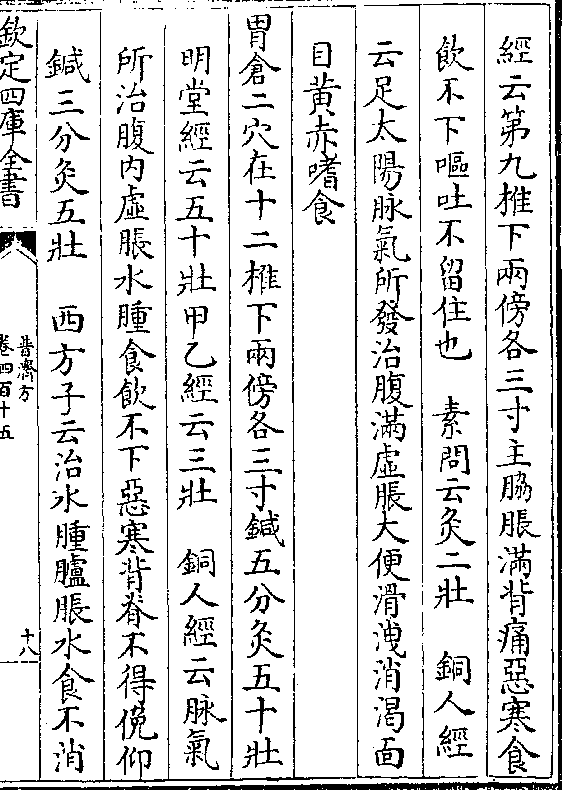 經云第九椎下兩傍各三寸主脇脹滿背痛惡寒食
飲不下嘔吐不留住也　素問云灸二壯　銅人經
云足太陽脉氣所發治腹滿虚脹大便滑洩消渴面
目黄赤嗜食
胃倉二穴在十二椎下兩傍各三寸鍼五分灸五十壯
明堂經云五十壯甲乙經云三壯　銅人經云脉氣
所治腹内虚脹水腫食飲不下惡寒背脊不得俛仰
鍼三分灸五壯　西方子云治水腫臚脹水食不消
欽定四庫全書
普濟方
卷四百十五
十八